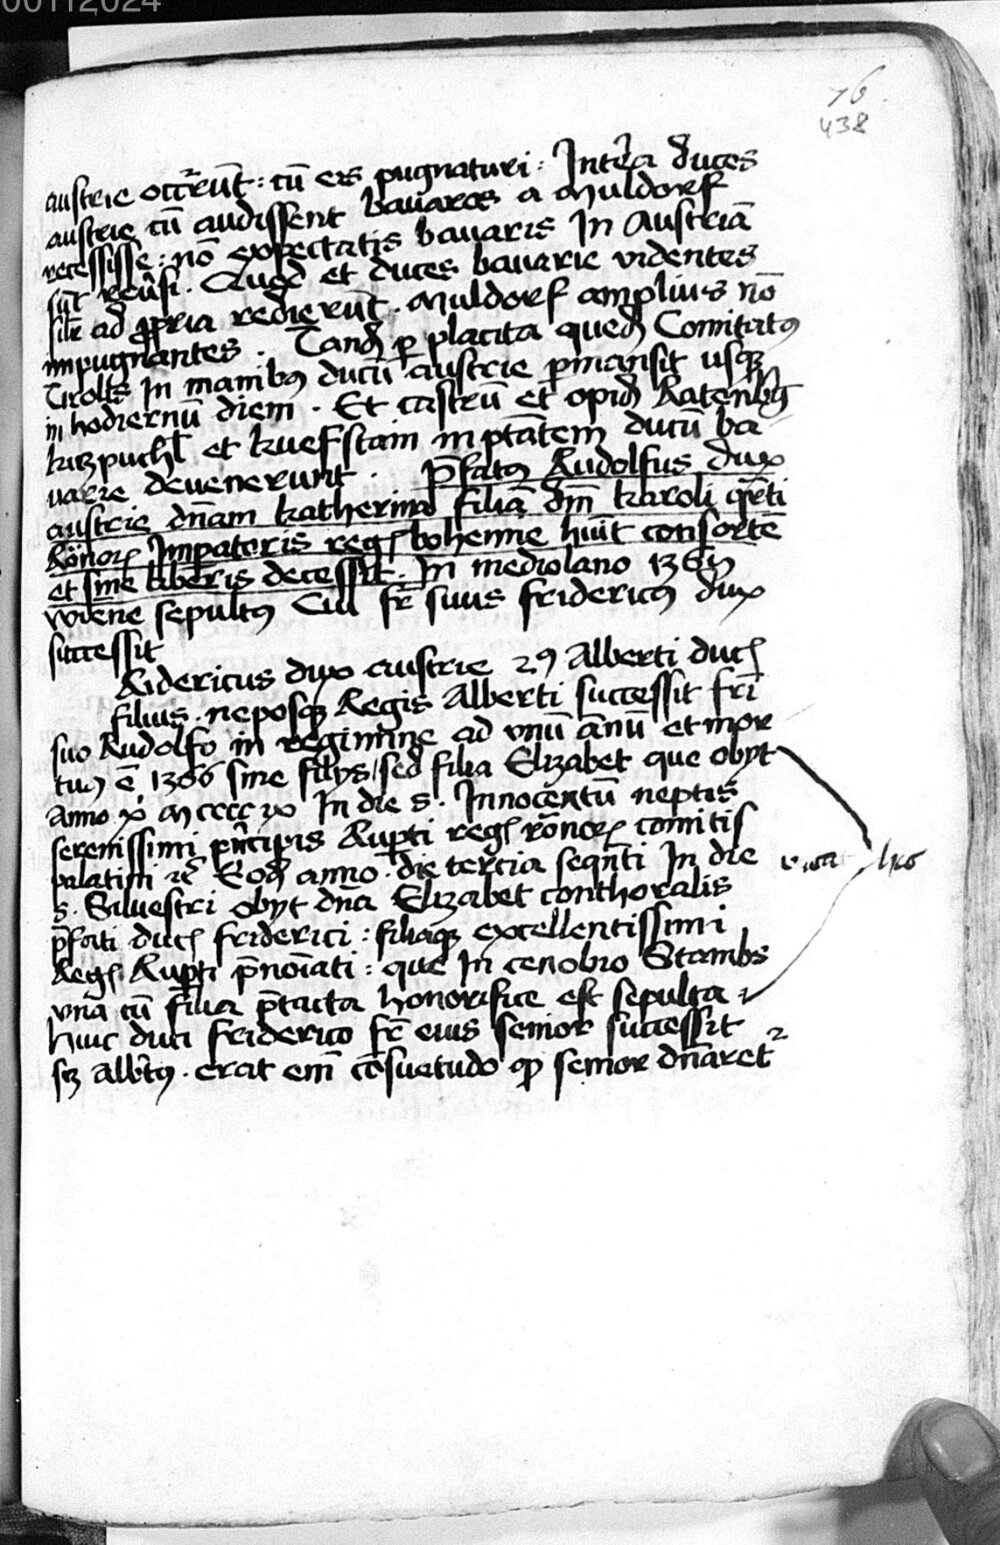 00112024
76
438
austrie occ̄rūt : cū eis pugnaturi : Intēa duces
austrie cū audissent bauaros a Muldorf
recessisse : nō expectatis bauaris In Austriā
sūt reūsi . Quod et duces bauarie videntes
silr̄ ad ꝓpria redierūt . Muldorf amplius nō
impugnantes . Tandē ꝑ placita quedā Comitatꝰ
Tirolis In manibꝫ ducū austrie ꝑmansit usqꝫ
in hodiernū diem . Et castrū et opidū Ratenbg̃
kitzpuchl et kuefstain in ptātem ducū ba
uarie deuenerunt . P̄fatꝰ Rudolfus dux
austrie dn̄am katherinā filiā dn̄i karoli qr̄ti
Rōnorꝫ Impatoris regꝭ bohemie hūit consortē
et sine liberis decessit . In mediolano 1365
wiēne sepultꝰ Cui fr̄ suus fridericꝰ dux
successit
Ridericus dux austrie 2ꝰ Alberti ducꝭ
filius . neposqꝫ Regis Alberti successit fr̄i
suo Rudolfo in regimine ad vnū annū et mor
tuꝰ ē 1366 sine filiis / sed filia Elizabet que obyt
anno x̄ Mccccix In die s . Innocentū neptis
serenissimi pn̄cipis Rupti regꝭ rōnorꝫ comitis
palatini ⁊c̄ Eodē anno . die tercia seqn̄ti In die
s . Siluestri obyt dn̄a Elizabet conthoralis
p̄fati ducꝭ friderici : filiaqꝫ excellentissimi
Regꝭ Rupti p̄noīati : que In cenobio Stambs
vnā cū filia p̄tacta honorifice est sepulta ⁊
huic duci friderico fr̄ eius senior successit
sꝫ Albtꝰ . erat em̄ cōsuetudo ꝙ senior dn̄aret²